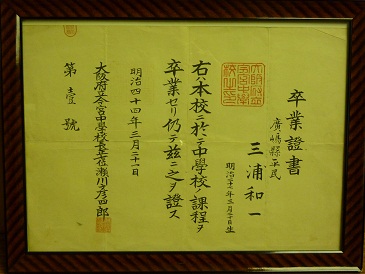 卒業證書
廣嶋縣平民
三浦和一
明治二十六年三月二十日生
右ハ本校ニ於テ中學校ノ課程ヲ
卒業セリ仍テ茲ニ之ヲ證ス
明治四十四年三月二十一日
大阪府立今宮中學校長正七位瀬川彦四郎
第壹號